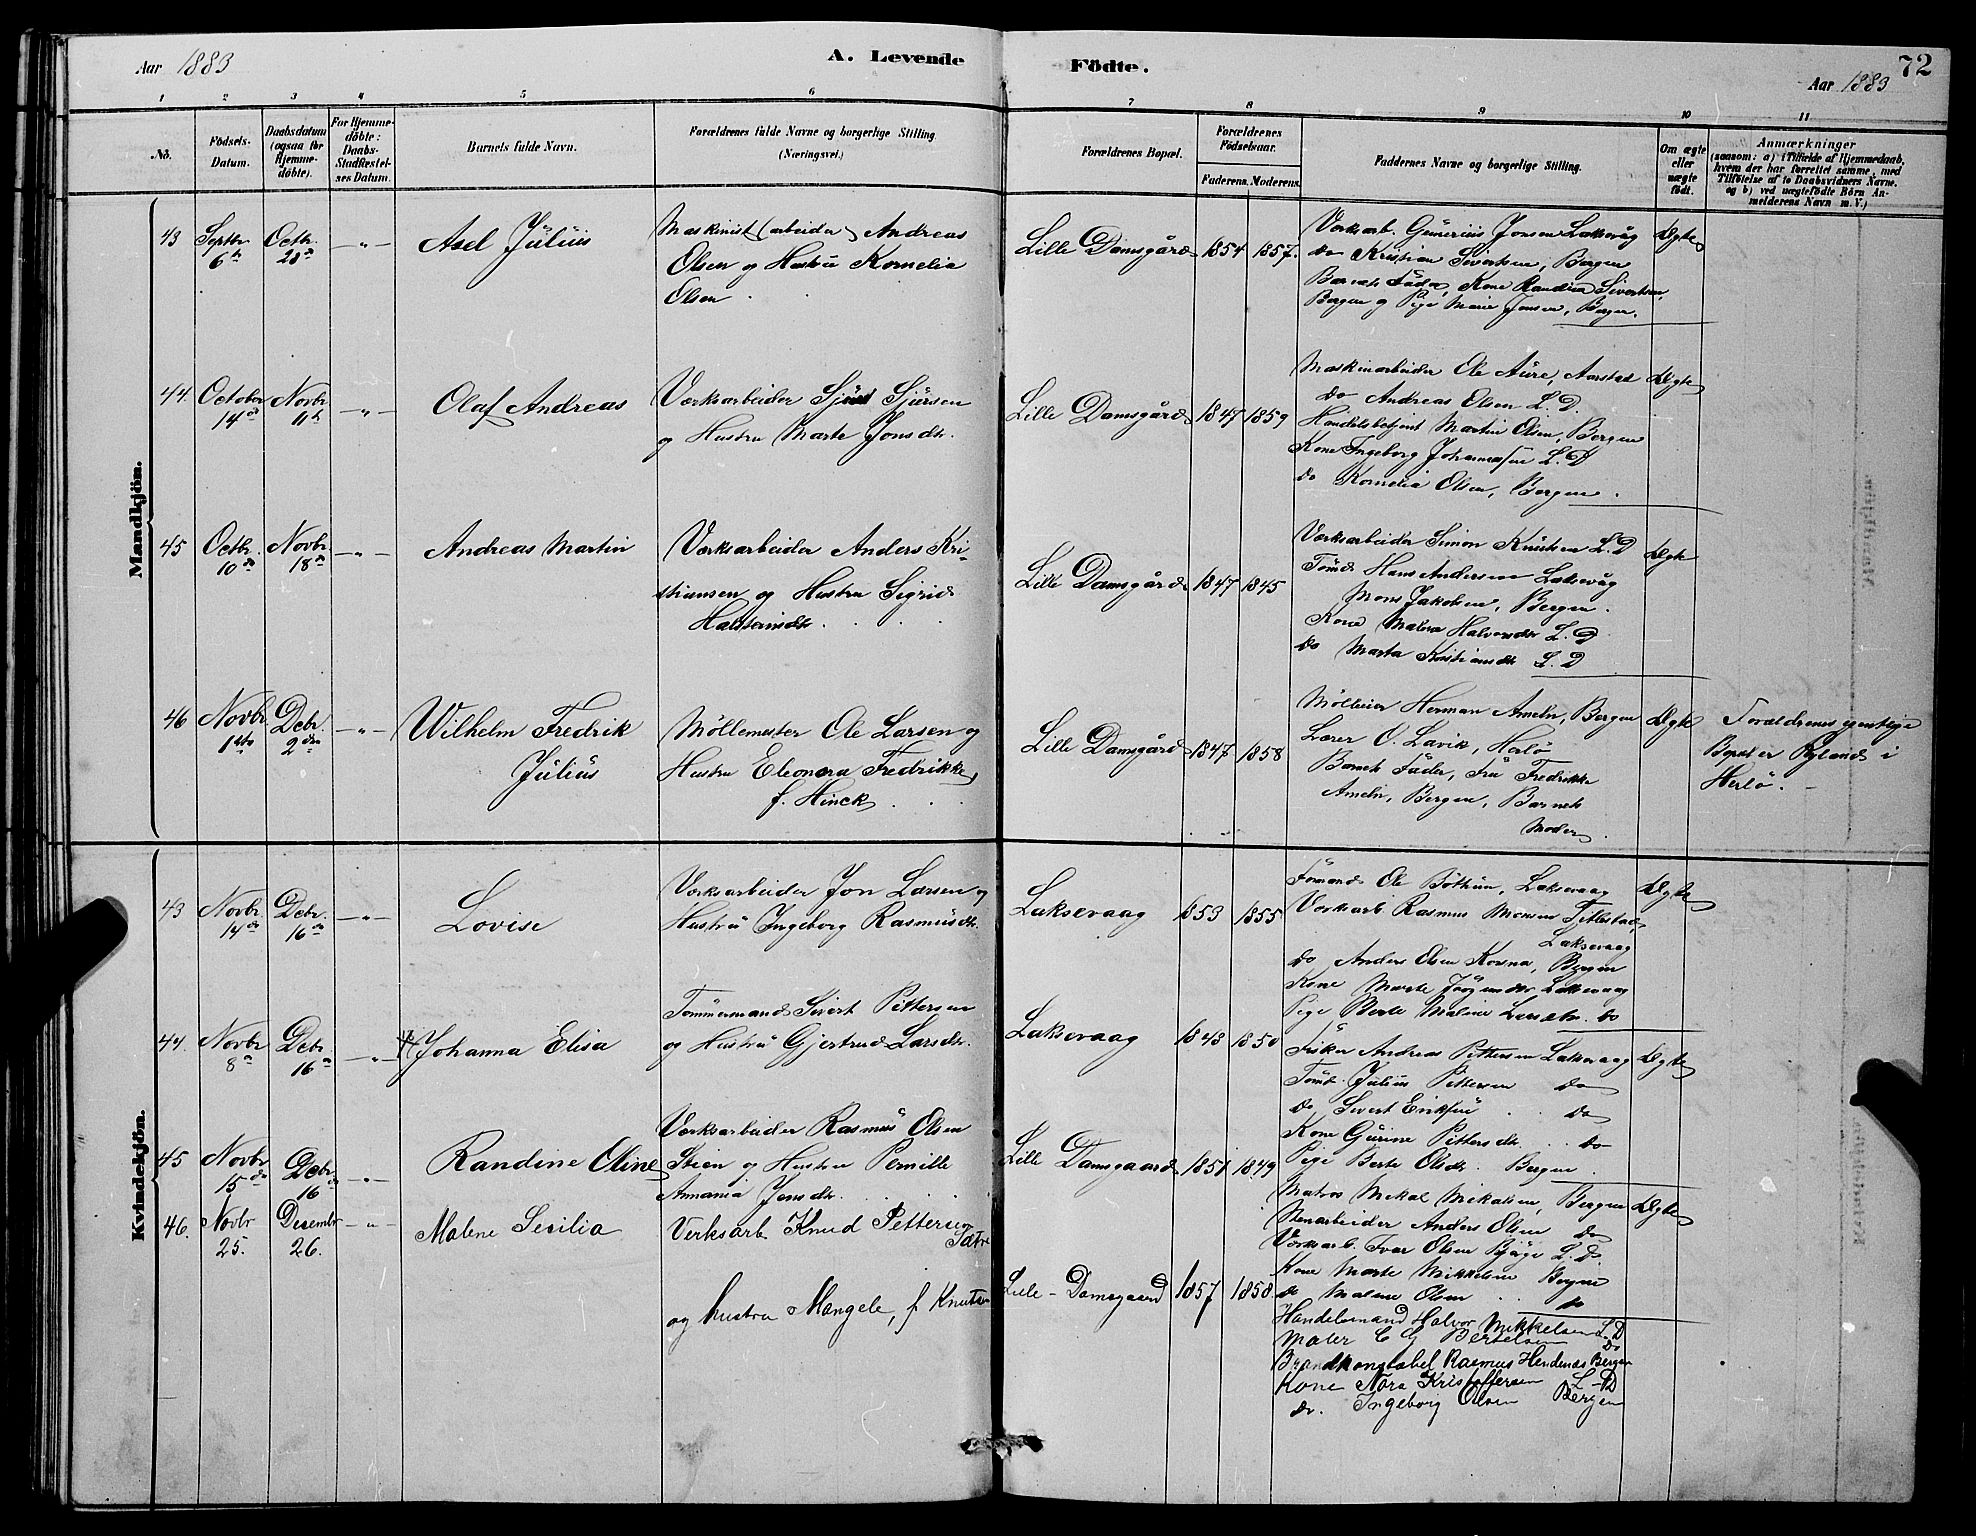 Aar 1883
A. Levende
Födte.
72
Aar 1883
1 2 3 4 5 6 7 8 9 10 11
No.
Födsels-Datum.
Daabsdatum (ogsaa for Hjemme-döbte).
For Hjemme-döbte: Daabs-Stadfæstel-ses Datum.
Barnets fulde Navn.
Forældrenes fulde Navne og borgerlige Stilling.
(Næringsvei.)
Forældrenes Bopæl.
Forældrenes Födselsaar.
Faderens. Moderens.
Faddernes Navne og borgerlige Stilling.
Om ægte eller uægte födt.
Anmærkninger
(saasom: a) i Tilfælde af Hjemmedaab,
hvem der har forrettet samme, med
Tilföielse af to Daabsvidners Navne.
og b) ved uægtefödte Börn An-
melderens Navn m. V.)
Mandkjön.
43 Septbr 6te Octbr. 21de -"- Axel Julius
Maskinist (arbeider) Andreas
Olsen og Hustru Kornelia
Olsen
Lille Damsgård 1854 1857.
Værksarb. Gunerius Jonsen Laksevåg
do Kristian Sivertsen, Bergen
Barnets Fader, Kone Randina Sivertsen,
Bergen og Pige Marie Jonsen, Bergen.
Ægte
44. October 14de Novbr 11te -"- Olaf Andreas
Værksarbeider Sjur Sjursen
og Hustru Marte Jonsdtr.
Lille Damsgård 1847 1859
Maskinarbeider Ole Aure, Aarstad
do Andreas Olsen L.D.
Handelsbetjent Martin Olsen, Bergen
Kone Ingeborg Johannesen L.D
do Kornelia Olsen, Bergen.
Ægte
45 Octbr. 10de Novbr 18de -"- Andreas Martin
Værksarbeider Anders Kri-
stiansen og Hustru Sigrid
Halsteinsdtr.
Lille Damsgård 1847 1845
Værksarbeider Simon Knutsen L.D
Tömd. Hans Andersen Laksevåg
Mons Jakobsen, Bergen.
Kone Malene Halvorsdtr L.D
do Marta Kristiansdtr L.D
Ægte
46 Novbr. 1ste Debr. 2den -"- Wilhelm Fredrik
Julius
Möllemester Ole Larsen og
Hustru Eleonora Fredrikke
f. Hinck
Lille Damsgård 1847 1858
Mölleier Herman Ameln, Bergen
Lærer O. Lavik, Herlö
Barnets Fader, Fru Fredrikke
Ameln, Bergen, Barnets
Moder.
Ægte
Forældrenes egentlige
Bopæl er Ryland i
Herlö.
Kvindekjön.
43 Novbr. 14de Debr. 16de -"- Lovise
Værksarbeider Jon Larsen og
Hustru Ingeborg Rasmusdtr.
Laksevaag 1853 1855
Formand Ole Böthun, Laksevaag
Værksarb. Rasmus Monsen
Laksevaag
do Anders Olsen Bergen
Kone Marte Laksevaag
Pige Berte Maline Larsdtr. do
Ægte
44. Novbr 8de Debr. 16de -"- Johanna Elisa
Tömmermand Sivert Pettersen
og Hustru Gjertrud Larsdtr.
Laksevaag 1843 1850
Fisker Andreas Pettersen Laksevaag
Tömd. Julius Pettersen do
do Sivert Eriksen do
Kone Gurine Pettersdtr. do
Pige Berte Olsdtr. Bergen.
Ægte
45 Novbr 15de Debr. 16de -"- Randine Oline
Værksarbeider Rasmus Olsen
Steen og Hustru Pernille
Annania Jonsdtr.
Lille Damsgaard 1851 1849
Matros Mikal Mikalsen, Bergen
Stenarbeider Anders Olsen do
Værksarb. Ivar Olsen L.D.
Kone Marte Mikkelsen Bergen
do Malene Olsen do
Ægte
46. Novbr 25. Desembr 26. -"- Malene Sesilia
Verksarb Knud Pettersen
Sætre
og hustru Mangele, f Knutsen
Lille-Damsgaard 1857 1858
Handelsmand Halvor Mikkelsen L.D
Maler C G Bertelsen do
Brandkonstabel Rasmus Bergen
Kone Nora Kristoffersen L-D
do. Ingeborg Olsen Bergen